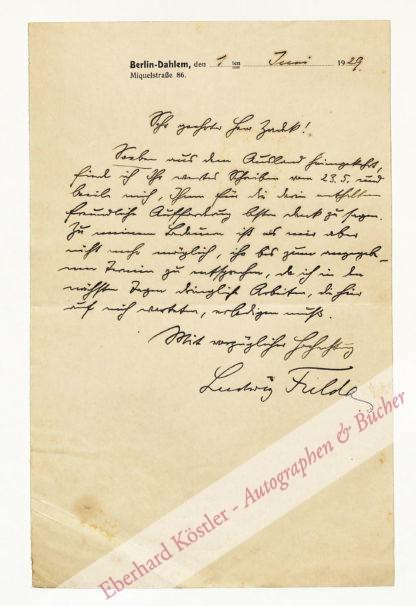 Berlin-Dahlem, den 1 ten Juni 1929.
Miquelstraße 86.
Sehr geehrter Herr Zadek!
Soeben aus dem Ausland heimgekehrt,
finde ich Ihr wertes Schreiben vom 23.5. und
beeile mich, Ihnen für die darin enthaltene
freundliche Aufforderung besten Dank zu sagen.
Zu meinem Bedauern ist es mir aber
nicht mehr möglich, ihr bis zum angegebe-
nen Termin zu entsprechen, da ich in den
nächsten Tagen dringliche Arbeiten, die hier
auf mich warteten, erledigen muß.
Mit vorzüglicher Hochachtung
Ludwig Fulda
Eberhard Köstler - Autographen & Bücher